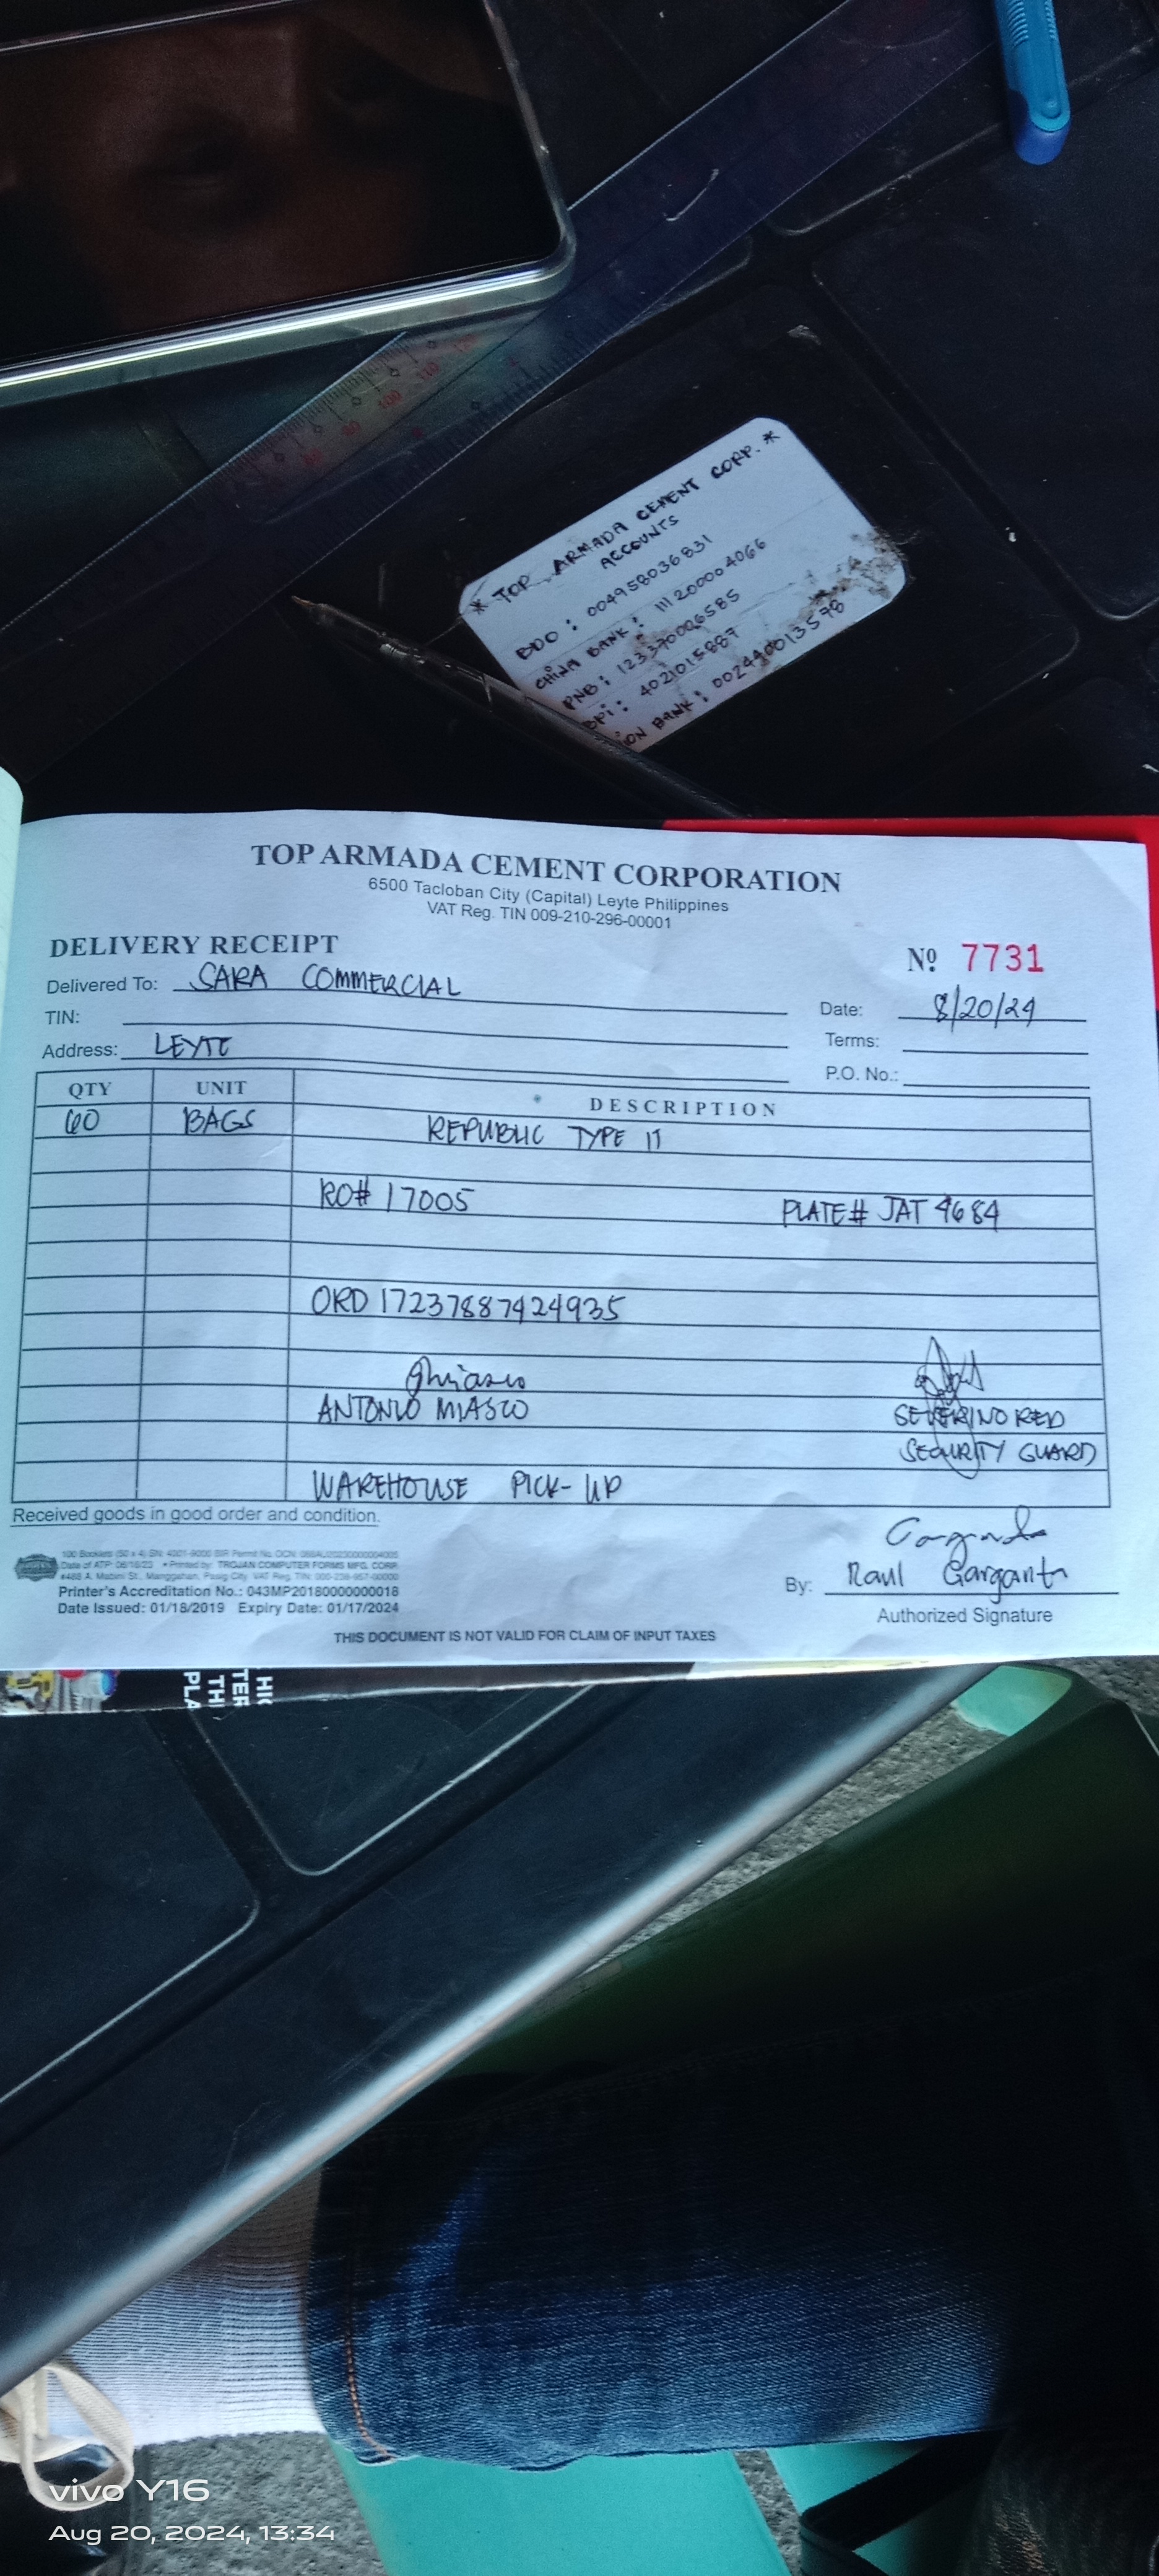 * TOP ARMADA CEMENT CORP. *
ACCOUNTS
BDO : 004958036831
CHINA BANK : 111200004066
PNB : 123370006585
BPI : 4021015887
ION BANK : 002440013578
TOP ARMADA CEMENT CORPORATION
6500 Tacloban City (Capital) Leyte Philippines
VAT Reg. TIN 009-210-296-00001
DELIVERY RECEIPT
Nº 7731
Delivered To: SARA COMMERCIAL
TIN:
Date: 8/20/24
Address: LEYTE
Terms:
P.O. No.:
QTY UNIT DESCRIPTION
60 BAGS REPUBLIC TYPE IT
RO# 17005 PLATE# JAT 4684
ORD 17237887424935
ANTONIO MIASCO SEVERINO RED
SECURITY GUARD
WAREHOUSE PICK-UP
Received goods in good order and condition.
100 Booklets (50 x 4) SN: 4001-9000 BIR Permit No. OCN:
Date of ATP: 06/16/23 • Printed by: TROJAN COMPUTER FORMS MFG. CORP.
#488 A. Mabini St., Manggahan, Pasig City VAT Reg. TIN: 000-238-957-00000
Printer's Accreditation No.: 043MP20180000000018
Date Issued: 01/18/2019 Expiry Date: 01/17/2024
By: Raul Garganta
Authorized Signature
THIS DOCUMENT IS NOT VALID FOR CLAIM OF INPUT TAXES
HIG
TER
TH
PLA
vivo Y16
Aug 20, 2024, 13:34